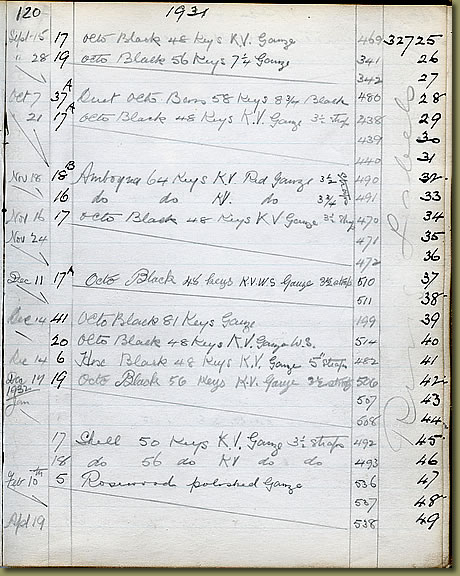 120 1931
Sept 15 17 Octo Black 48 Keys K.V. Gauze 469 32725
" 28 19 Octo Black 56 Keys 7¼ Gauze 341 26
342 27
Oct 7 37A Duet Octo Bass 58 Keys 8¾ Black 480 28
21 17A Octo Black 48 Keys K.V. Gauze 3½ Straps 438 29
439 30
440 31
Nov 18 18B Amboyna 64 Keys K.V. Red Gauze 3½ Straps 490 32
16 do do KV. do 3¾ 491 33
Nov 16 17 Octo Black 48 Keys K.V Gauze 3½ Straps 470 34
Nov 24 471 35
472 36
Dec 11 17A Octo Black 48 keys K.V.W.S. Gauze 3½ straps 510 37
511 38
Dec 14 41 Octo Black 81 Keys Gauze 199 39
20 Octo Black 48 Keys K.V. Gauze W.S. 514 40
Dec 14 6 Hex Black 48 Keys K.V. Gauze 5" straps 482 41
Dec 17 19 Octo Black 56 Keys K.V. Gauze 3½ straps 506 42
1932
Jan 507 43
508 44
17 Shell 50 Keys K.V. Gauze 3½ Straps 492 45
18 do 56 do KV do do 493 46
Feb 10th 5 Rosewood polished Gauze 536 47
537 48
Apl 19 538 49